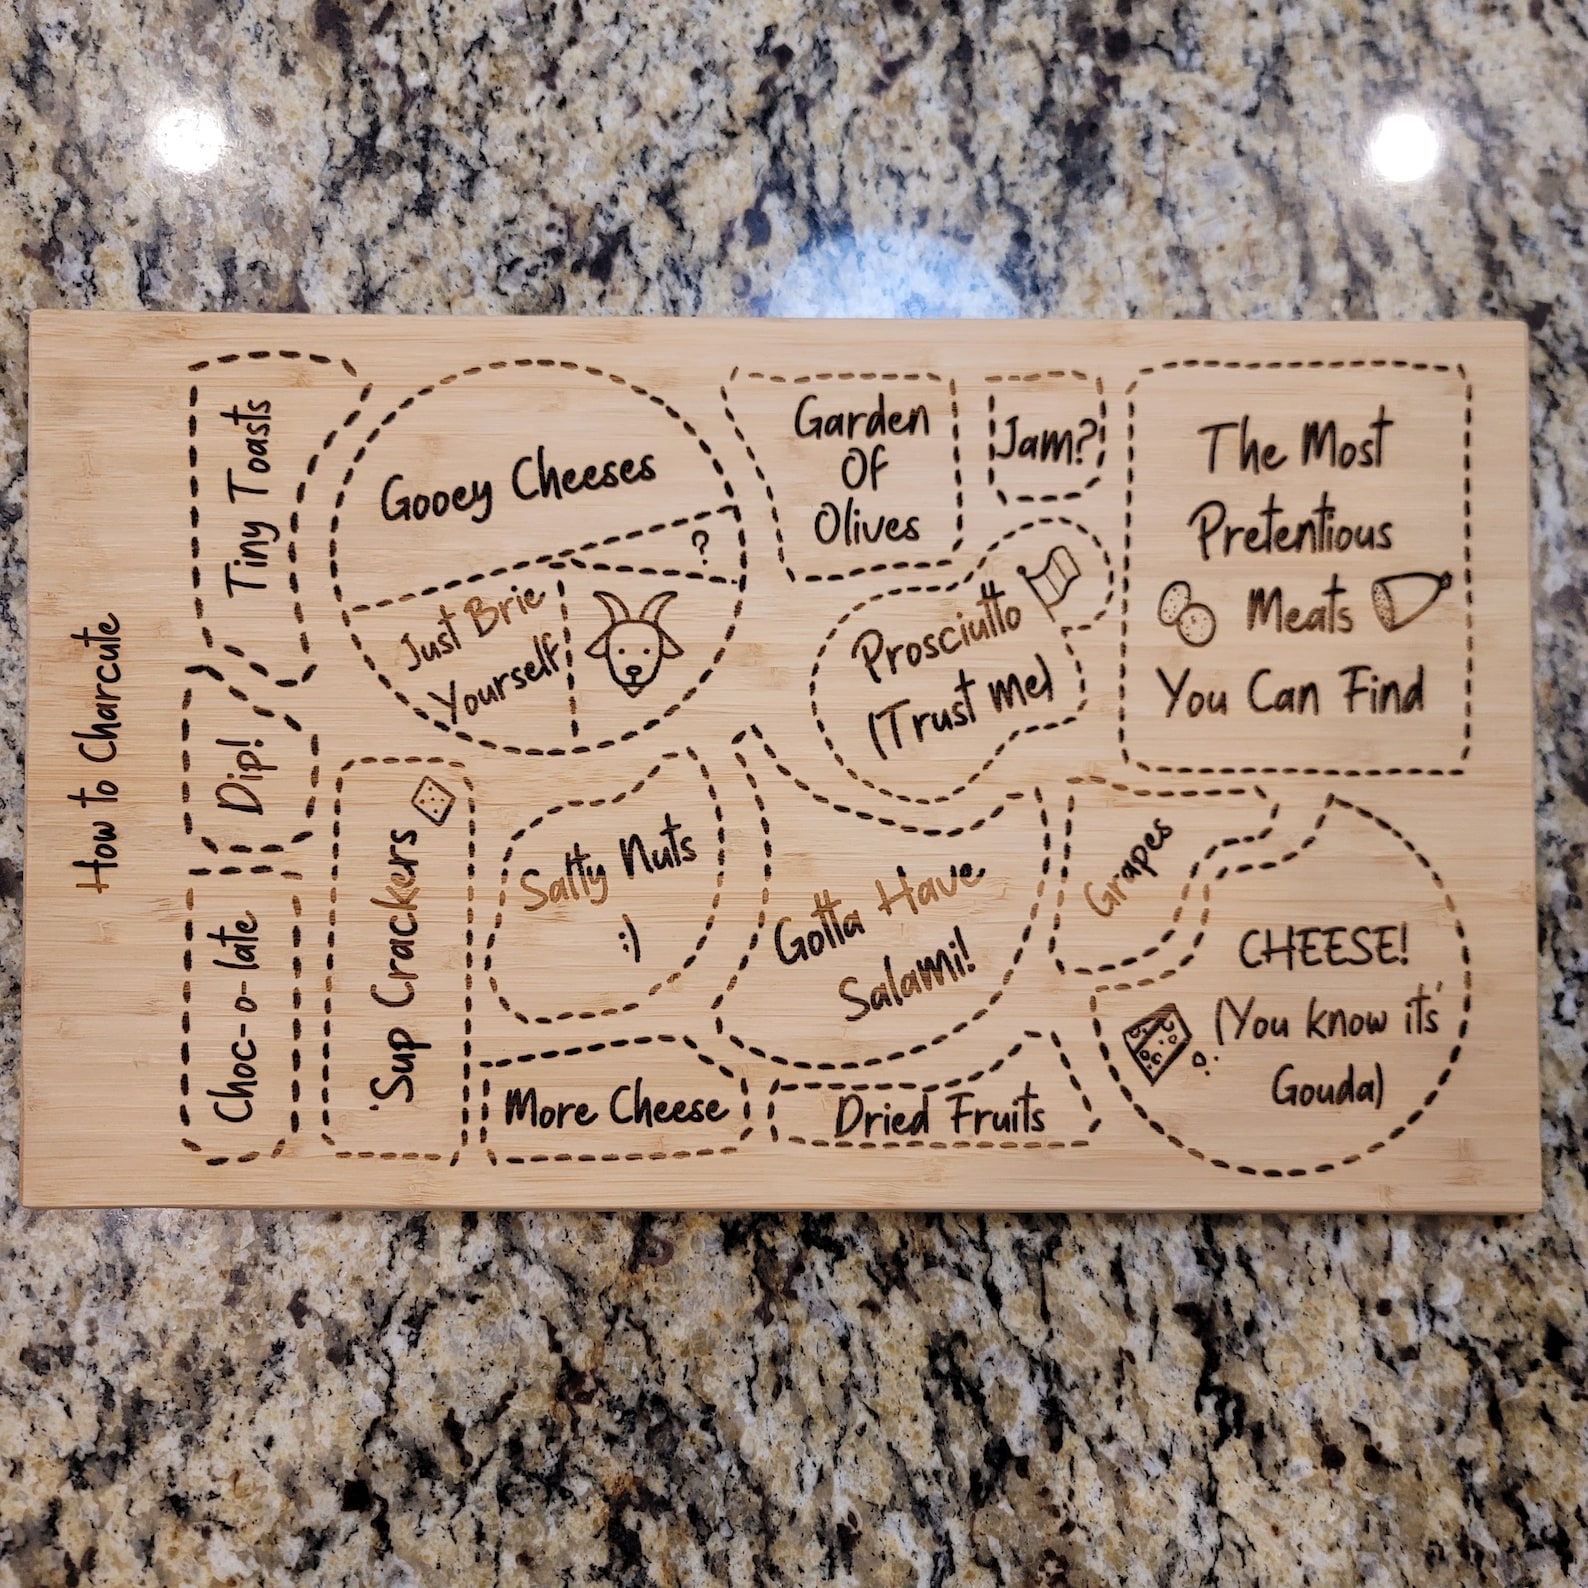 How to Charcute
Tiny Toasts
Dip!
Choc-o-late
Gooey Cheeses
?
Just Brie
Yourself
'Sup Crackers
Garden
Of
Olives
Jam?
The Most
Pretentious
Meats
You Can Find
Prosciutto
(Trust me)
Salty Nuts
:)
Gotta Have
Salami!
Grapes
CHEESE!
(You know it's
Gouda)
More Cheese
Dried Fruits